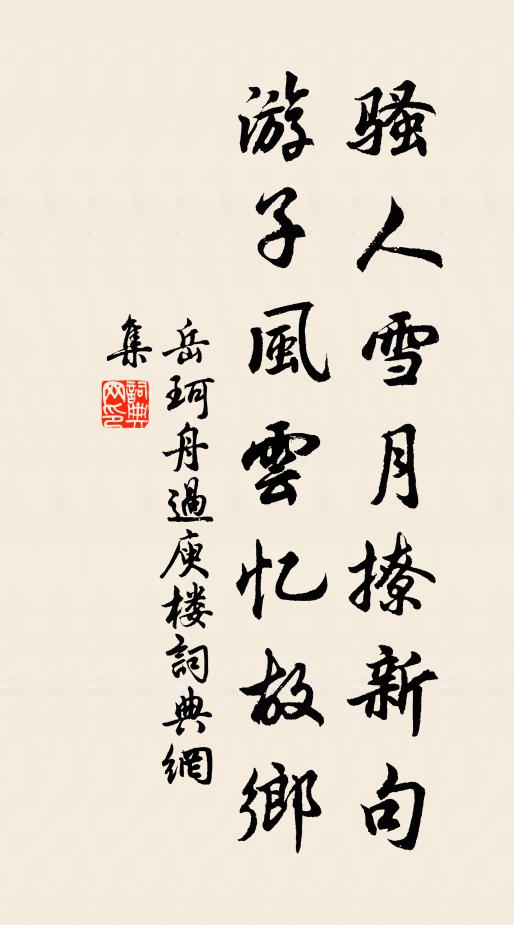 骚人雪月撩新句
游子風雲忆故鄉
岳珂舟過庾楼詞典網
集
詞典网印